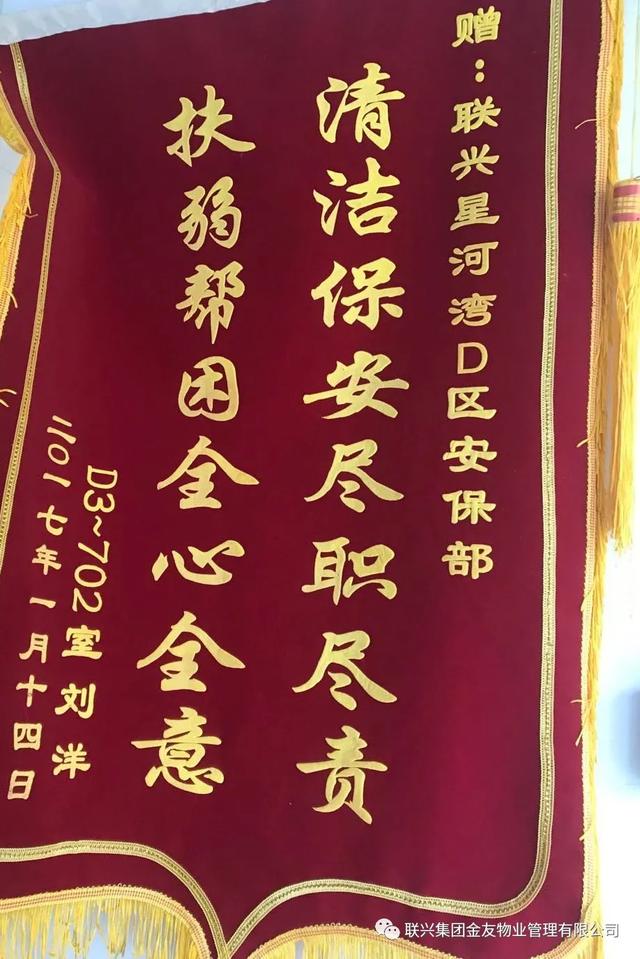 赠：联兴星河湾D区安保部
清洁保安尽职尽责
扶弱帮困全心全意
D3~702室刘洋
二〇一七年一月十四日
联兴集团金友物业管理有限公司